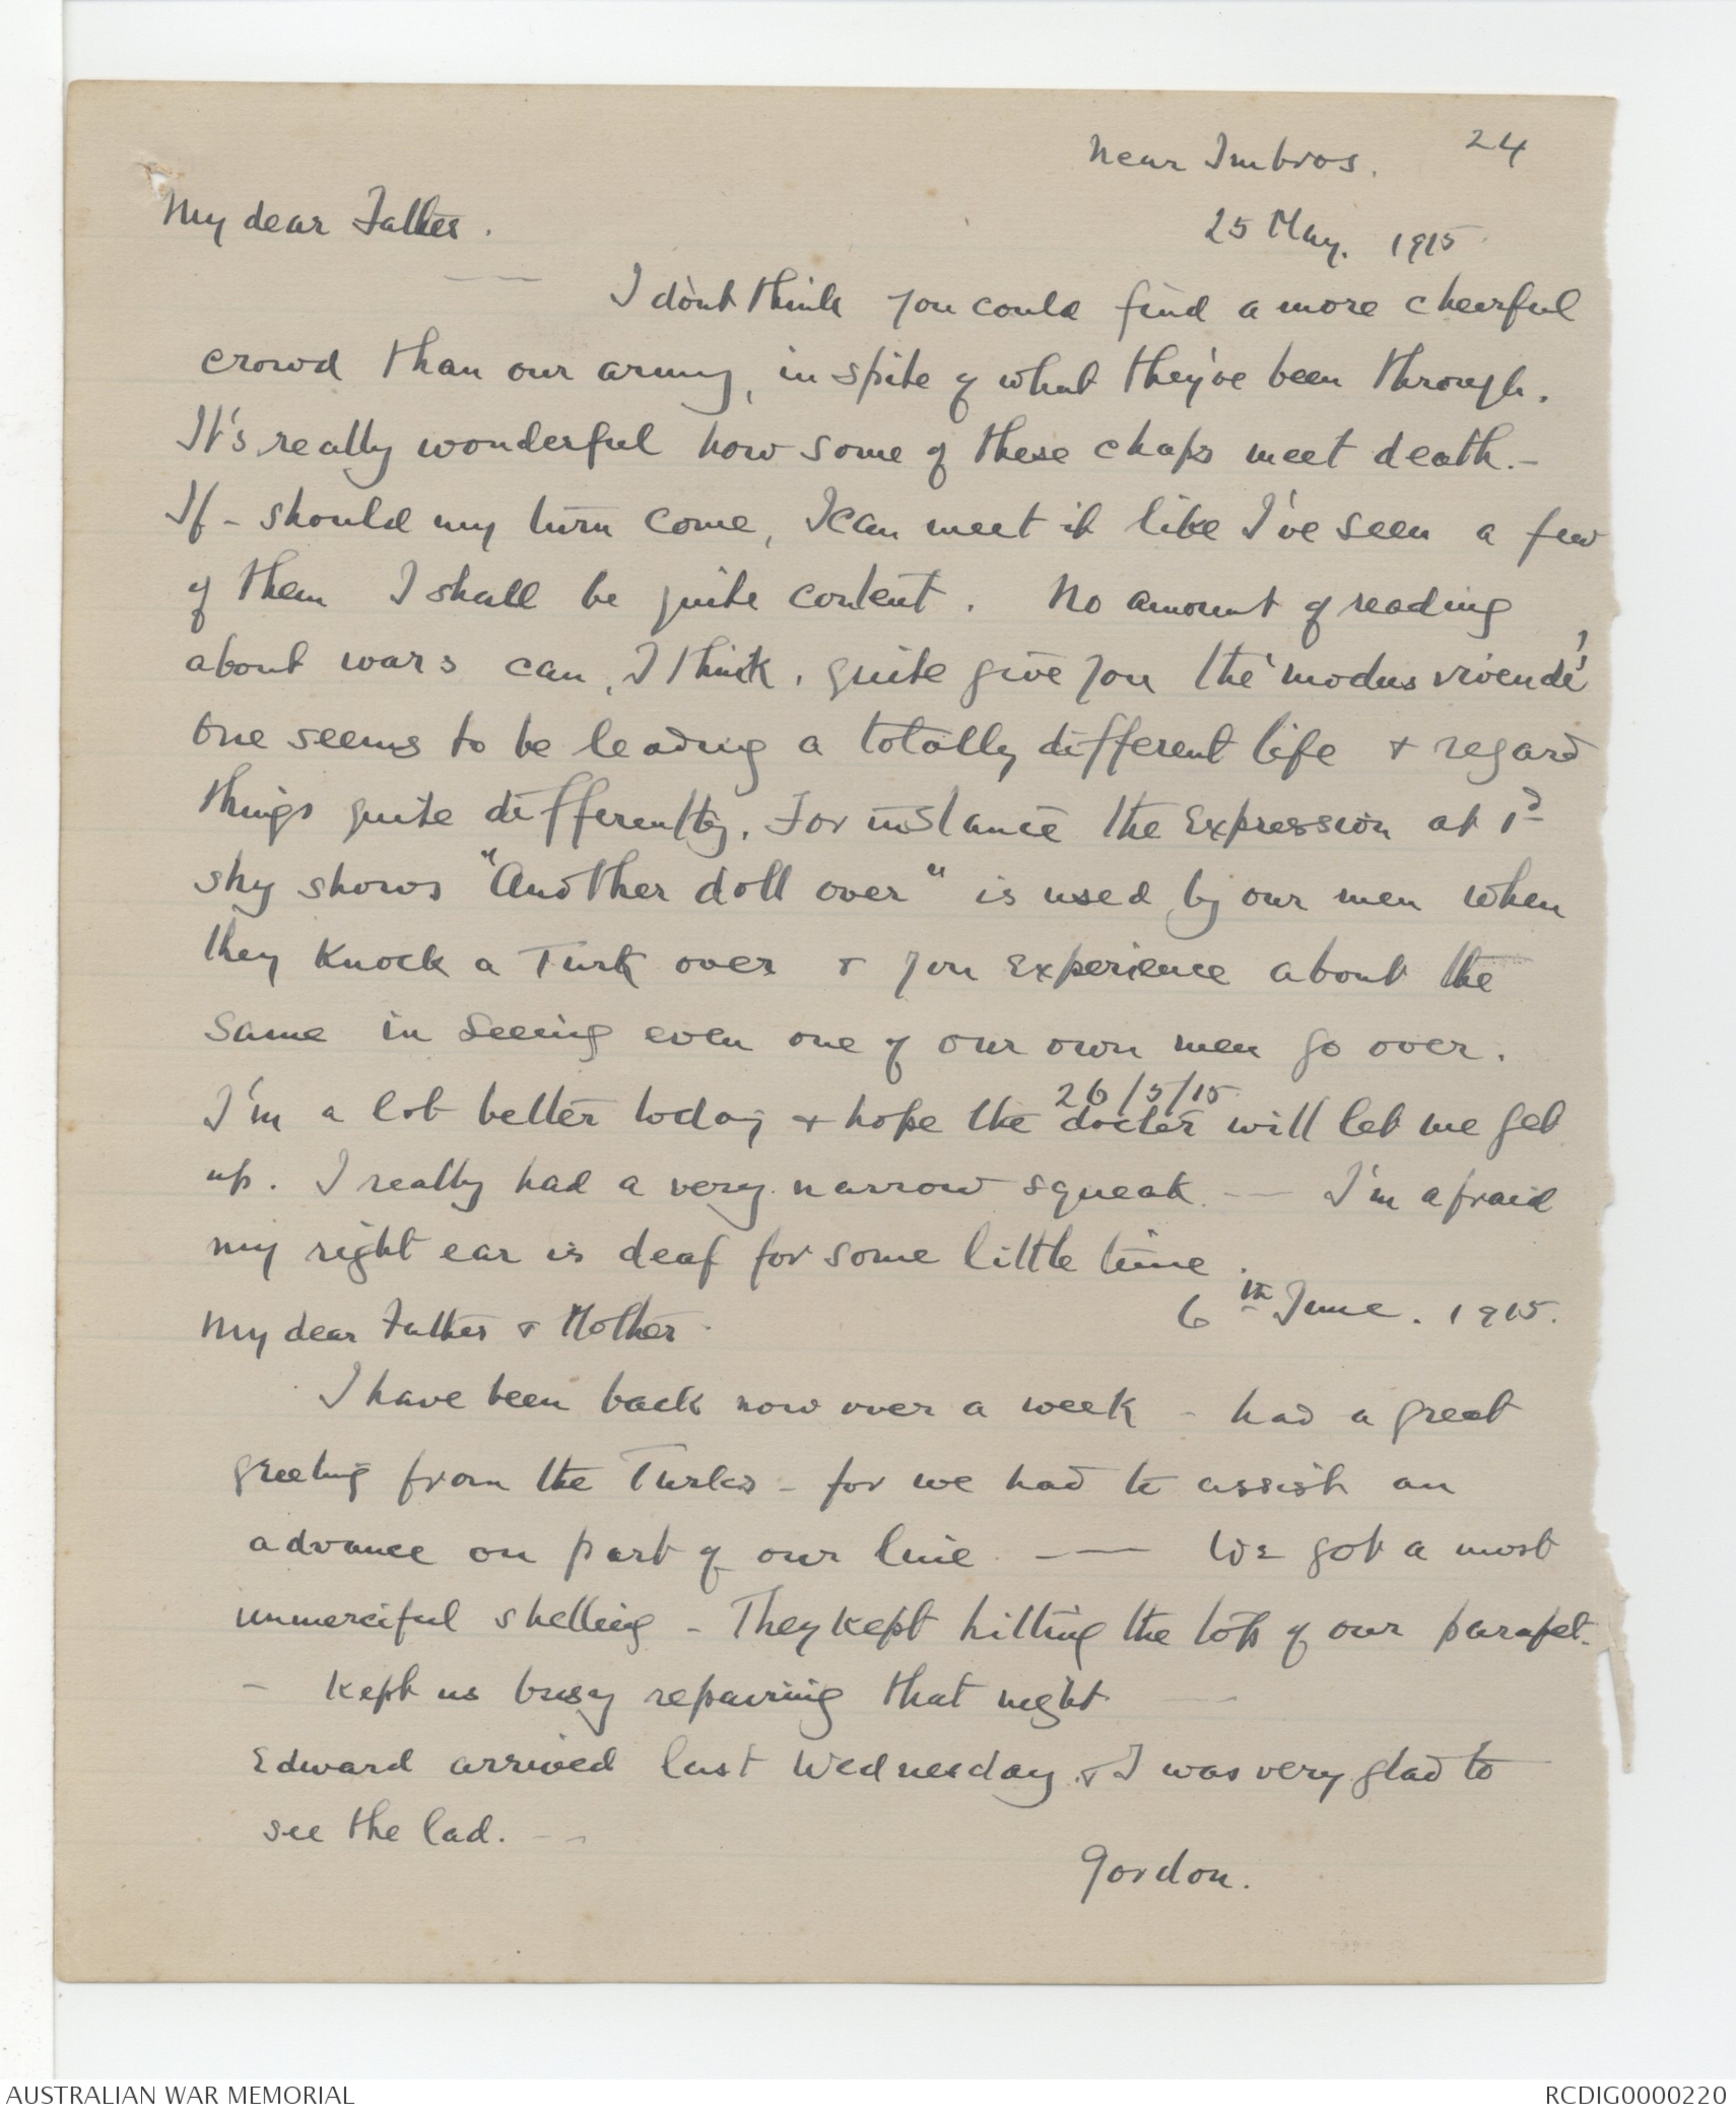 24
Near Imbros.
25 May. 1915
My dear Father.
I don't think you could find a more cheerful
crowd than our army, in spite of what they've been through.
It's really wonderful how some of these chaps meet death.-
If - should my turn come, I can meet it like I've seen a few
of them I shall be quite content. No amount of reading
about wars can, I think, quite give you the 'modus vivendi'
One seems to be leading a totally different life & regard
things quite differently. For instance the expression at 1d
shy shows "Another doll over" is used by our men when
they knock a Turk over & you experience about the
same in seeing even one of our own men go over.
26/5/15
I'm a lot better today & hope the doctor will let me get
up. I really had a very narrow squeak. — I'm afraid
my right ear is deaf for some little time.
6th June. 1915.
My dear Father & Mother.
I have been back now over a week - had a great
greeting from the Turks - for we had to assist an
advance on part of our line. — We got a most
unmerciful shelling - They kept hitting the top of our parapet.
- kept us busy repairing that night —
Edward arrived last Wednesday & I was very glad to
see the lad. - -
Gordon.
AUSTRALIAN WAR MEMORIAL
RCDIG0000220